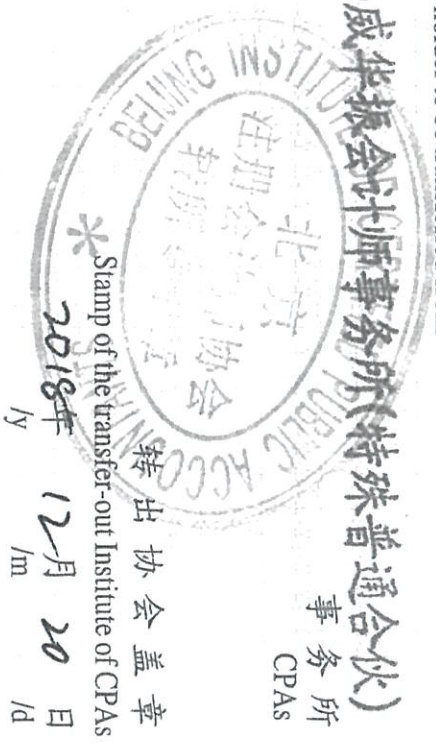 威华振会计师事务所(特殊普通合伙)
事务所
CPAs
BEIJING INSTITUTE OF
PUBLIC ACCOUNTANTS
北京
注册会计师协会
转出协会盖章
Stamp of the transfer-out Institute of CPAs
2018年 12月 20日
/y /m /d